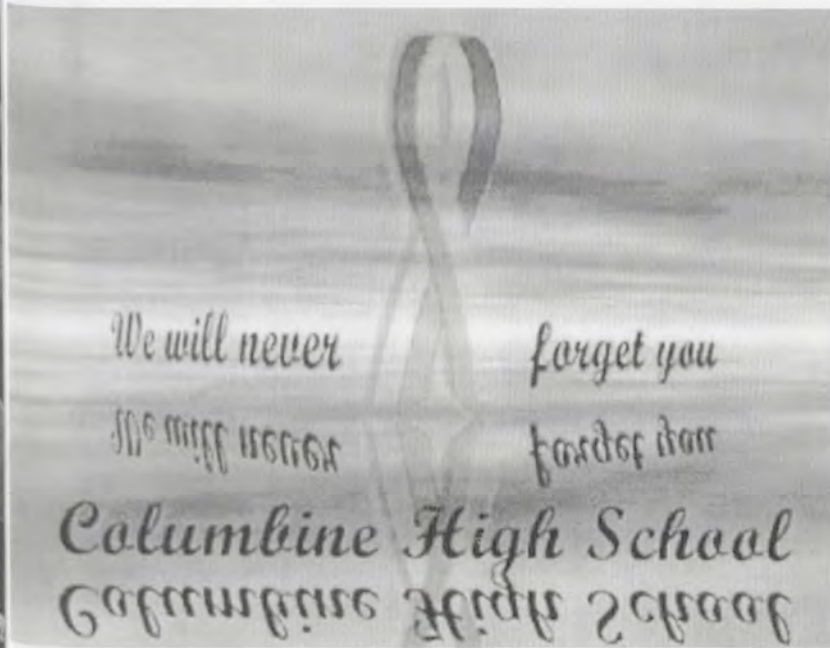 We will never forget you
Columbine High School